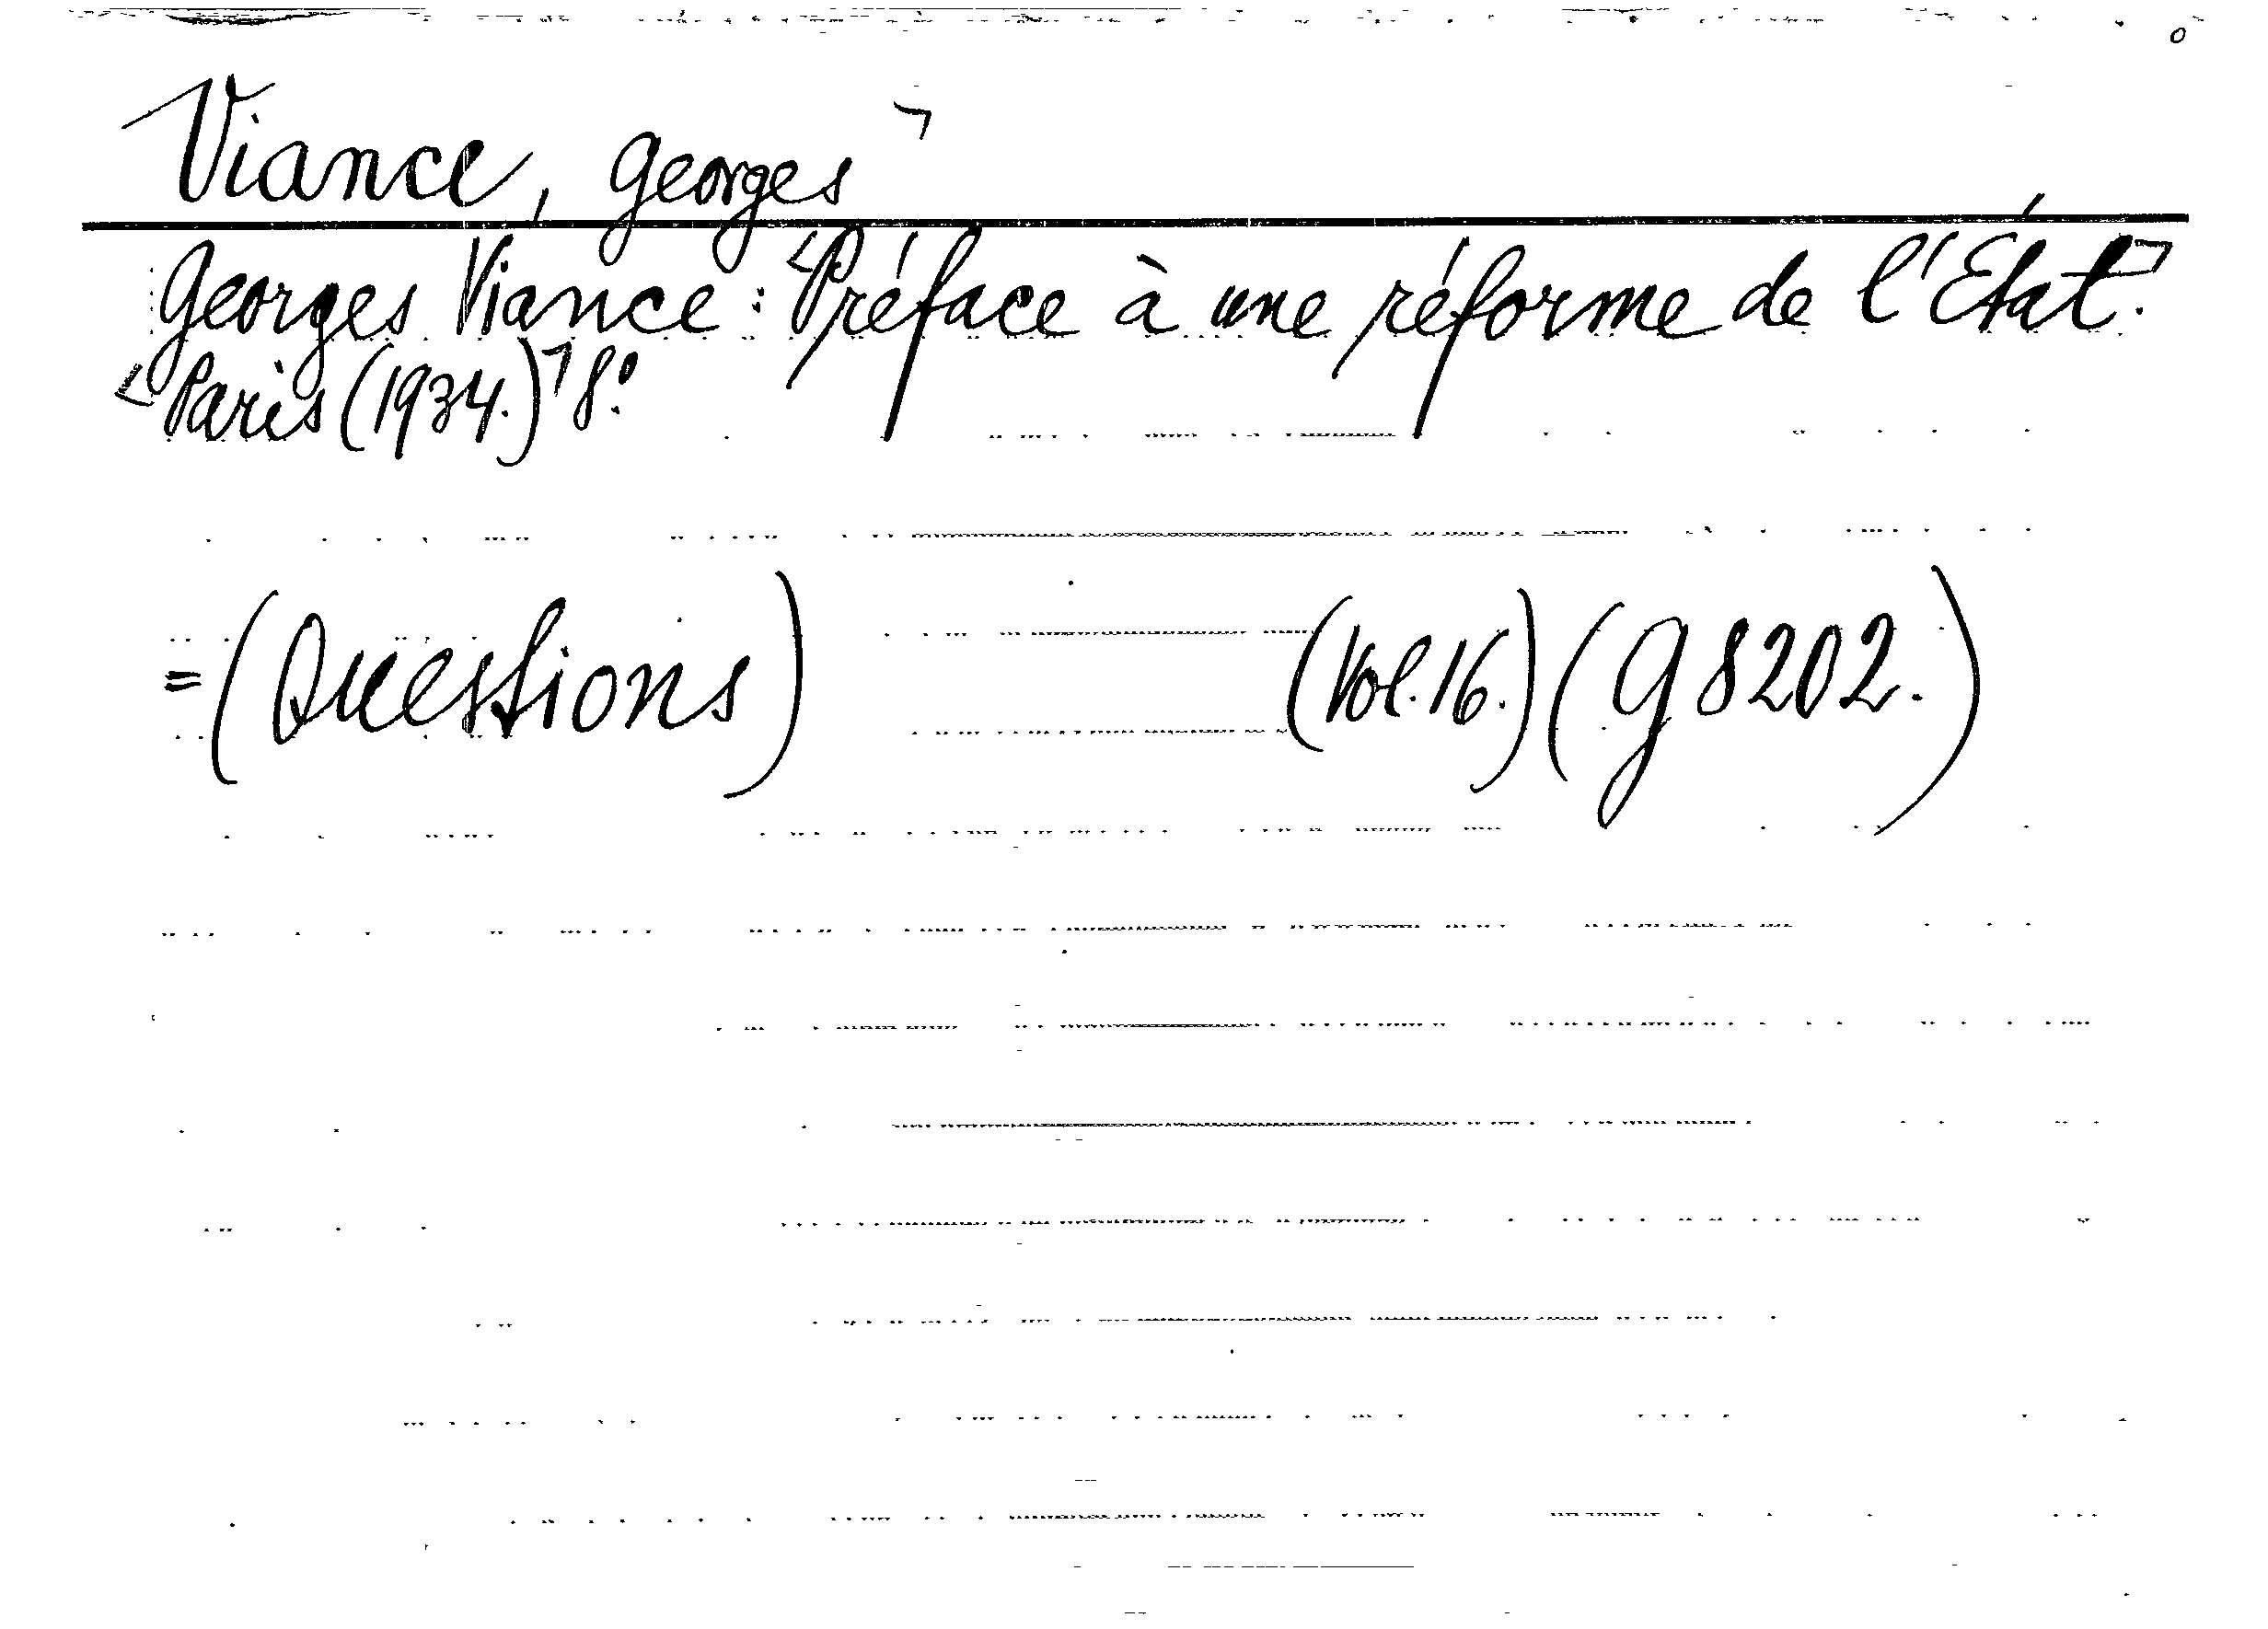 Viance, Georges
Georges Viance: Préface à une réforme de l'État.
Paris (1934.) 8°.
=(Questions) (Vol. 16.) (G 8202.)